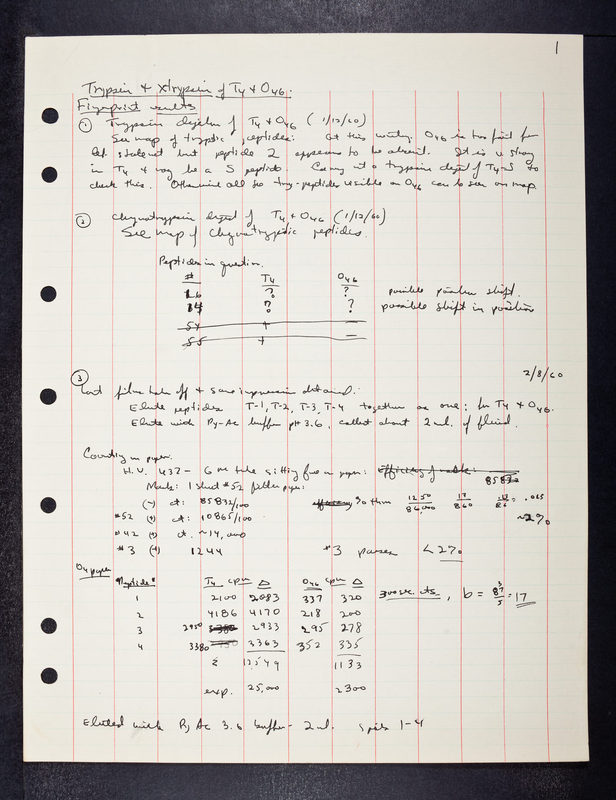 1
Trypsin & xtrypsin of T4 & O46:
Fingerprint results
① Trypsin digestion of T4 + O46 (1/12/60)
See map of tryptic peptides: At this writing O46 is too faint for
statement but peptide 2 appears to be absent. It is strong
in T4 & may be a S peptide. Carry out a trypsin digest of T4-S to
check this. Otherwise all try-peptide visible on O46 can be seen on map
② chymotrypsin digest of T4 + O46 (1/12/60)
See map of Chymotryptic peptides.
Peptides in question.
# T4 O46
16 ? ? possible position shift.
14 ? ? possible shift in position
54 + —
55 + —
2/8/60
③
film taken off & same impression obtained.
Elute peptides T-1, T-2, T-3, T-4 together as one: for T4 & O46.
Elute with Py-Ac buffer pH 3.6, collect about 2 ml. of fluid.
Counting on paper.
H.V. 437- 6 on tube sitting face on paper:
Mask: 1 sheet #52 filter paper:
(-) ct: 85832/100
#52 (+) ct: 10865/100
#42 (+) ct. ~14,000
#3 (+) 1244
85832
so thru 1250/86,000 13/860 .13/86 = .015
~2%
#3 passes <2%
On paper
"Peptide" T4 cpm Δ O46 cpm Δ
1 2100 2083 337 320
2 4186 4170 218 200
3 2950 2933 295 278
4 3380 3363 352 335
Σ 12549 1133
exp. 25,000 2300
300 sec. cts, b = 87/5 = 17
Eluted with Py Ac 3.6 buffer - 2 ml. spots 1-4